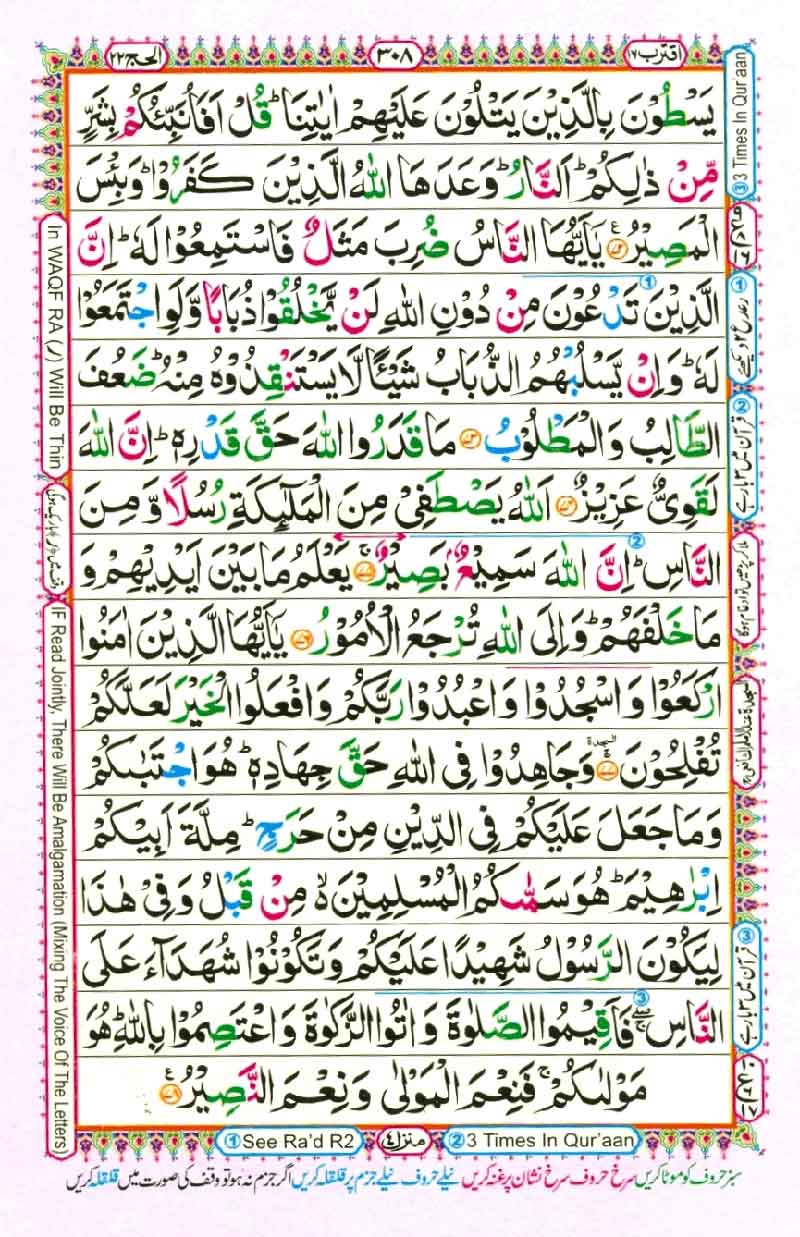 اقترب ١٧
٣٠٨
الحج ٢٢
يَسْطُوْنَ بِالَّذِيْنَ يَتْلُوْنَ عَلَيْهِمْ اٰيٰتِنَا ؕ قُلْ اَفَاُنَبِّئُكُمْ بِشَرٍّ
مِّنْ ذٰلِكُمْ ؕ اَلنَّارُ ؕ وَعَدَهَا اللّٰهُ الَّذِيْنَ كَفَرُوْا ؕ وَبِئْسَ
الْمَصِيْرُ ۝ يٰۤاَيُّهَا النَّاسُ ضُرِبَ مَثَلٌ فَاسْتَمِعُوْا لَهٗ ؕ اِنَّ
الَّذِيْنَ تَدْعُوْنَ مِنْ دُوْنِ اللّٰهِ لَنْ يَّخْلُقُوْا ذُبَابًا وَّلَوِ اجْتَمَعُوْا
لَهٗ ؕ وَاِنْ يَّسْلُبْهُمُ الذُّبَابُ شَيْـًٔا لَّا يَسْتَنْقِذُوْهُ مِنْهُ ؕ ضَعُفَ
الطَّالِبُ وَالْمَطْلُوْبُ ۝ مَا قَدَرُوا اللّٰهَ حَقَّ قَدْرِهٖ ؕ اِنَّ اللّٰهَ
لَقَوِيٌّ عَزِيْزٌ ۝ اَللّٰهُ يَصْطَفِيْ مِنَ الْمَلٰٓئِكَةِ رُسُلًا وَّمِنَ
النَّاسِ ؕ اِنَّ اللّٰهَ سَمِيْعٌۢ بَصِيْرٌ ۝ يَعْلَمُ مَا بَيْنَ اَيْدِيْهِمْ وَ
مَا خَلْفَهُمْ ؕ وَاِلَى اللّٰهِ تُرْجَعُ الْاُمُوْرُ ۝ يٰۤاَيُّهَا الَّذِيْنَ اٰمَنُوا
ارْكَعُوْا وَاسْجُدُوْا وَاعْبُدُوْا رَبَّكُمْ وَافْعَلُوا الْخَيْرَ لَعَلَّكُمْ
تُفْلِحُوْنَ ۝ وَجَاهِدُوْا فِي اللّٰهِ حَقَّ جِهَادِهٖ ؕ هُوَ اجْتَبٰىكُمْ
وَمَا جَعَلَ عَلَيْكُمْ فِي الدِّيْنِ مِنْ حَرَجٍ ؕ مِلَّةَ اَبِيْكُمْ
اِبْرٰهِيْمَ ؕ هُوَ سَمّٰىكُمُ الْمُسْلِمِيْنَ ۙ مِنْ قَبْلُ وَفِيْ هٰذَا
لِيَكُوْنَ الرَّسُوْلُ شَهِيْدًا عَلَيْكُمْ وَتَكُوْنُوْا شُهَدَآءَ عَلَى
النَّاسِ ۖۚ فَاَقِيْمُوا الصَّلٰوةَ وَاٰتُوا الزَّكٰوةَ وَاعْتَصِمُوْا بِاللّٰهِ ؕ هُوَ
مَوْلٰىكُمْ ۚ فَنِعْمَ الْمَوْلٰى وَنِعْمَ النَّصِيْرُ ۝
③ 3 Times In Qur'aan
① رعد ع ٢ دیکھئے
② قرآن میں ٣ بار ہے
③ قرآن میں ٣ بار ہے
In WAQF RA (ر) Will Be Thin
IF Read Jointly, There Will Be Amalgamation (Mixing The Voice Of The Letters)
① See Ra'd R2
منزل ٤
② 3 Times In Qur'aan
سبز حروف کو موٹا کریں سرخ حروف سرخ نشان پر غنہ کریں نیلے حروف نیلے جزم پر قلقلہ کریں اگر جزم نہ ہو تو وقف کی صورت میں قلقلہ کریں